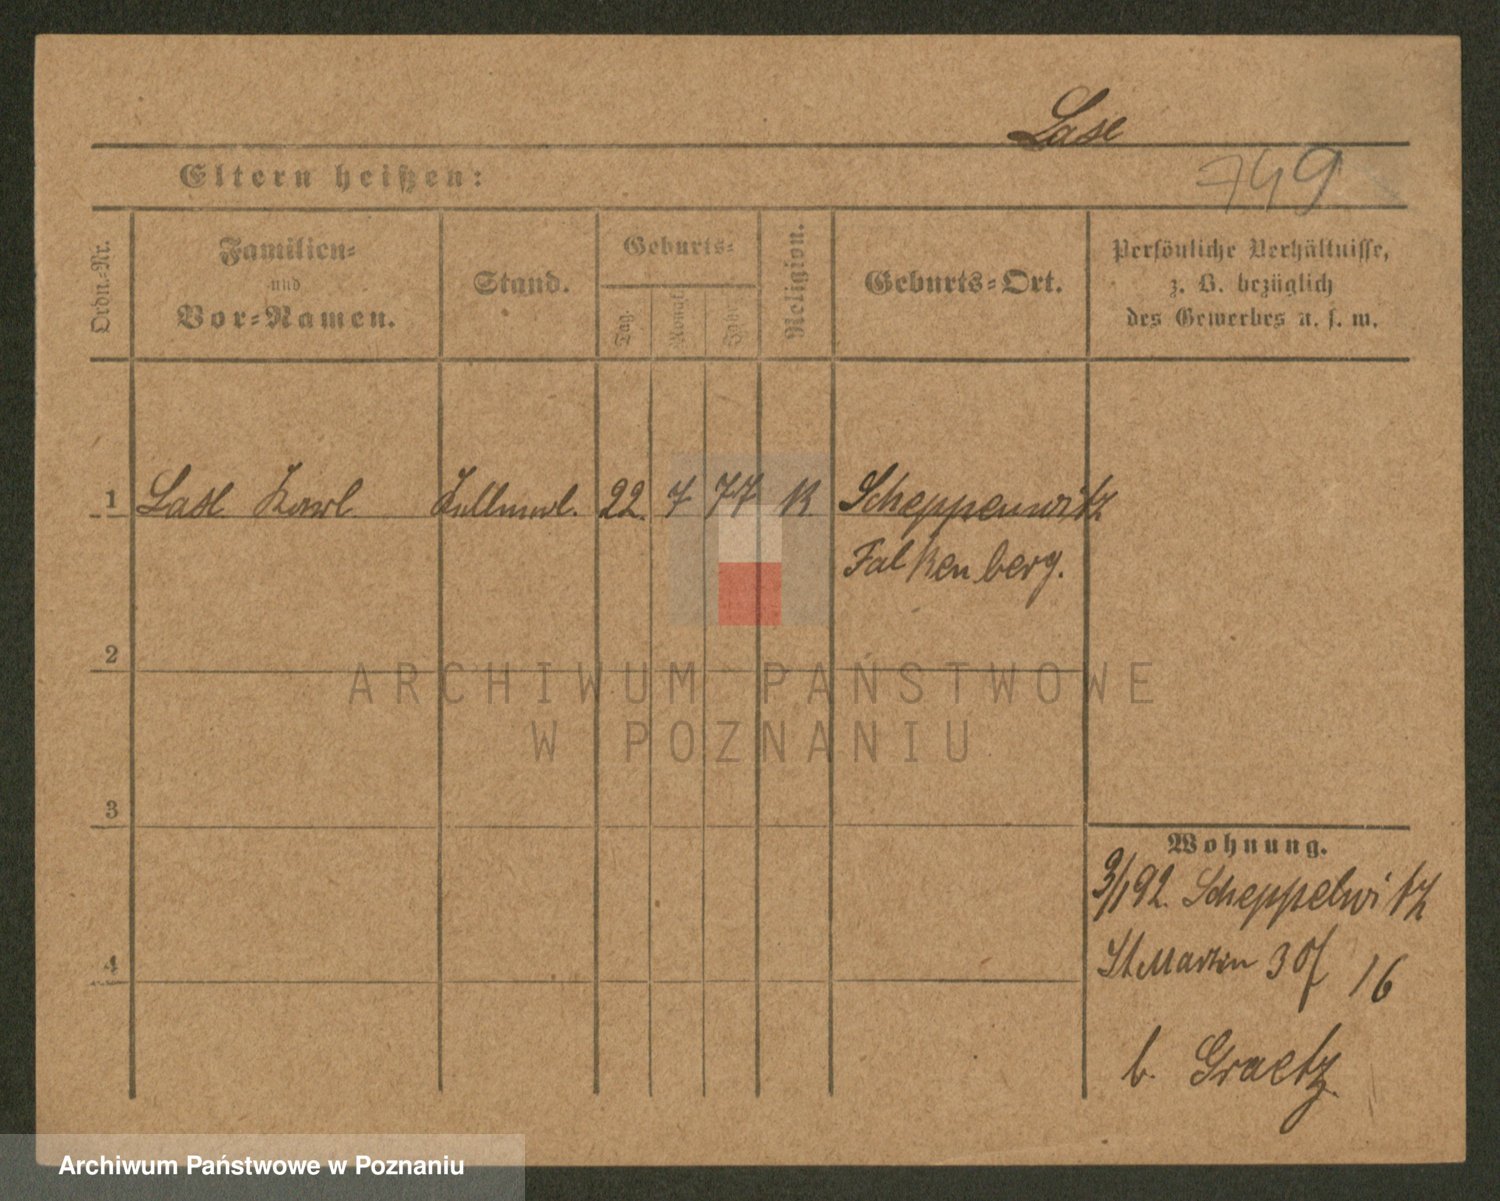 Lase
Eltern heißen:
749
Ordn.-Nr.
Familien-
und
Vor-Namen.
Stand.
Geburts-
Tag.
Monat
Jahr
Religion.
Geburts-Ort.
Persönliche Verhältnisse,
z. B. bezüglich
des Gewerbes u. s. w.
1 Lase Karl Kellnerl. 22. 7 77 K Scheppenwitz
Falkenberg.
2
3
4
Wohnung.
3/1 92. Scheppelwitz
St Martin 30/ 16
b. Graetz
ARCHIWUM PAŃSTWOWE
W POZNANIU
Archiwum Państwowe w Poznaniu